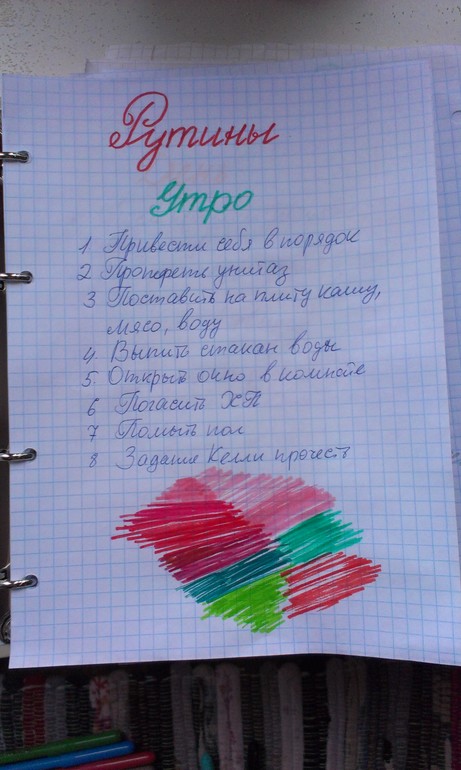 Рутины
Утро
1 Привести себя в порядок
2 Протереть унитаз
3 Поставить на плиту кашу,
мясо, воду
4 Выпить стакан воды
5. Открыть окно в комнате
6 Погасить ХП
7 Помыть пол
8 Задание Келли прочесть